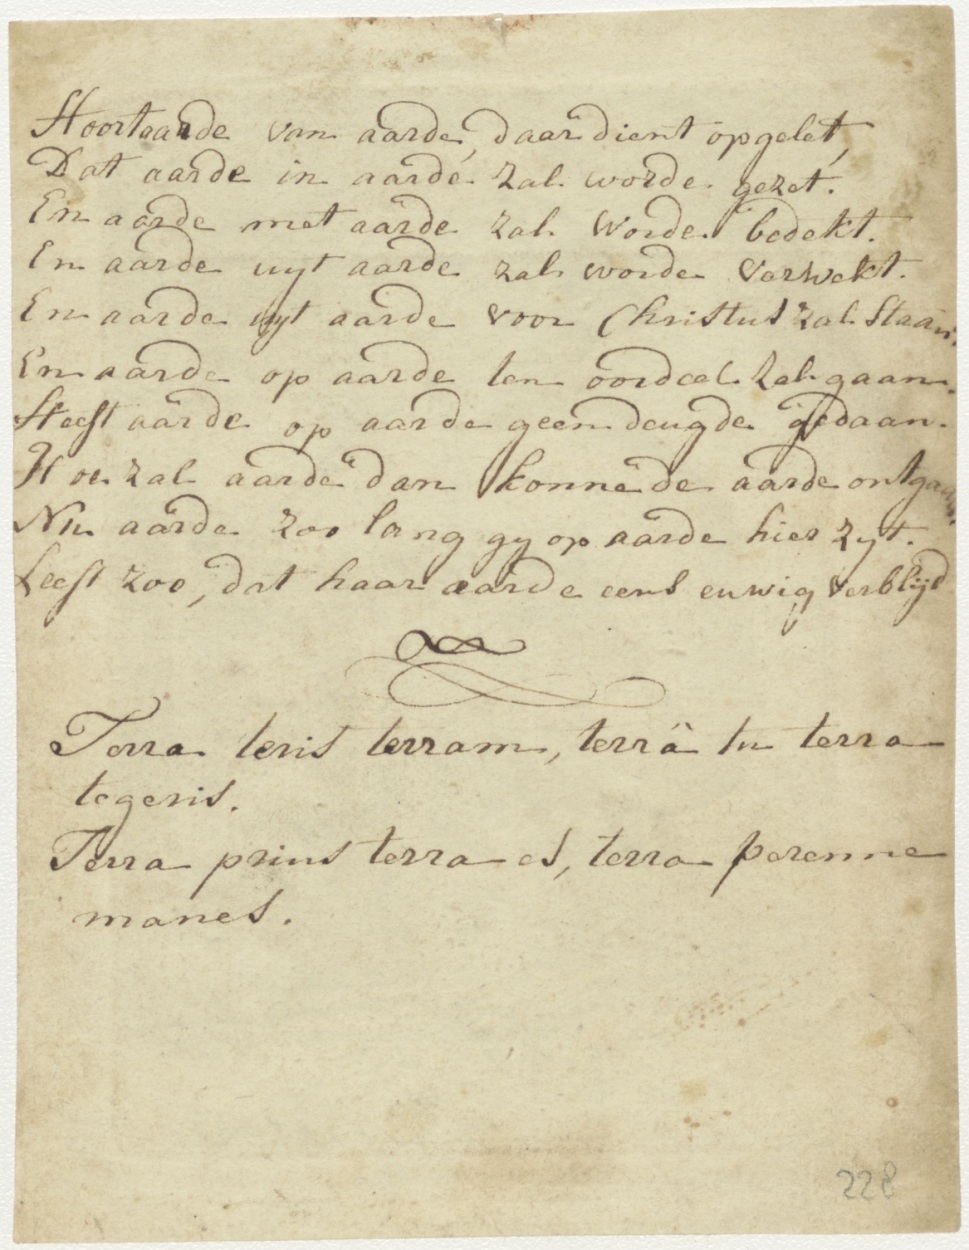 Hoort aarde van aarde, daar dient op gelet,
Dat aarde in aarde zal worde gezet.
En aarde met aarde zal worde bedekt.
En aarde uyt aarde zal worde verwekt.
En aarde uyt aarde voor Christus zal staan.
En aarde op aarde ten oordeel zal gaan.
Heeft aarde op aarde geen deugde gedaan.
Hoe zal aarde dan konne de aarde ontgaan.
Nu aarde zoo lang gy op aarde hier zyt.
Leeft zoo, dat haar aarde eens euwig verblijd
Terra teris terram, terrâ tu terra
tegeris.
Terra prius terra es, terra perenne
manes.
228